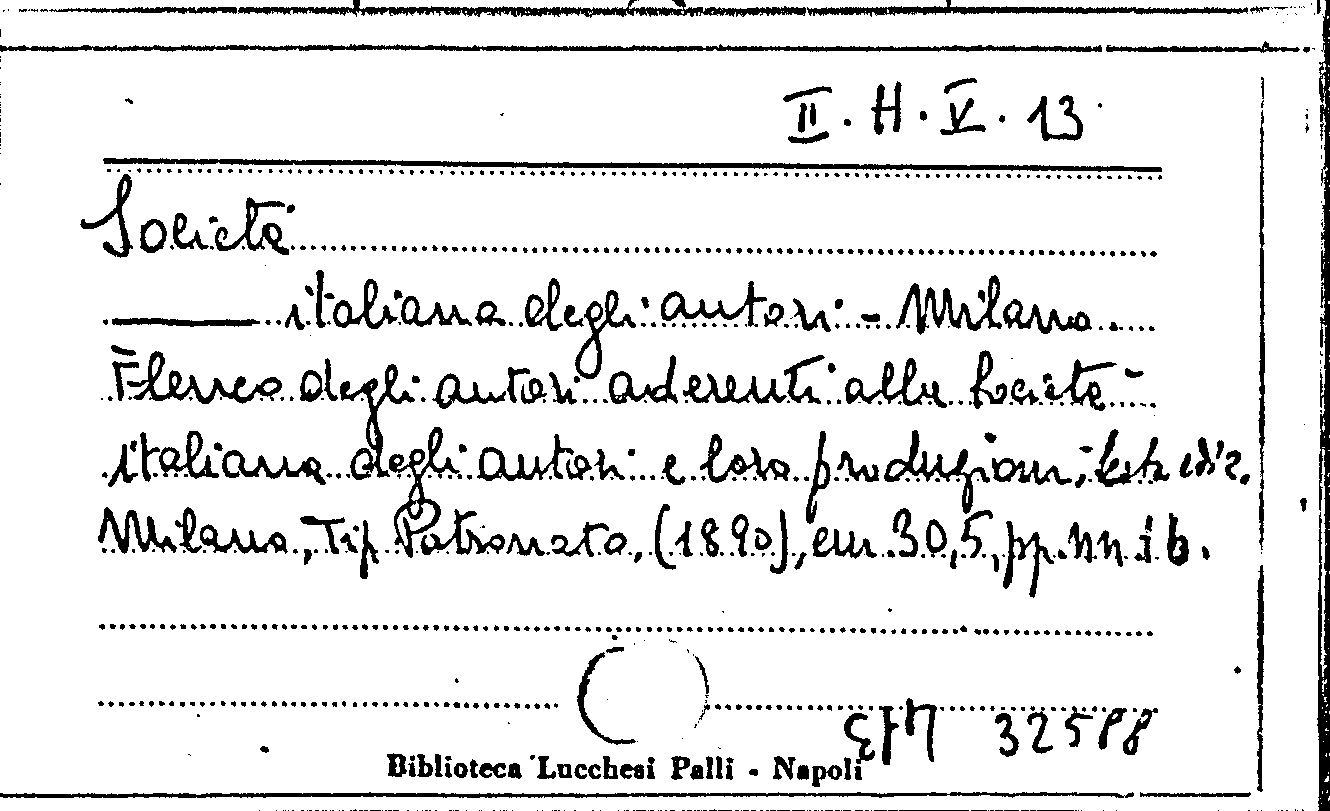 II. H. V. 13
Società
italiana degli autori - Milano.
Elenco degli autori aderenti alla Società
italiana degli autori e loro produzioni, ediz.
Milano, Tip. Patronato, (1890), cm. 30,5, pp. nn 16.
32588
Biblioteca Lucchesi Palli - Napoli